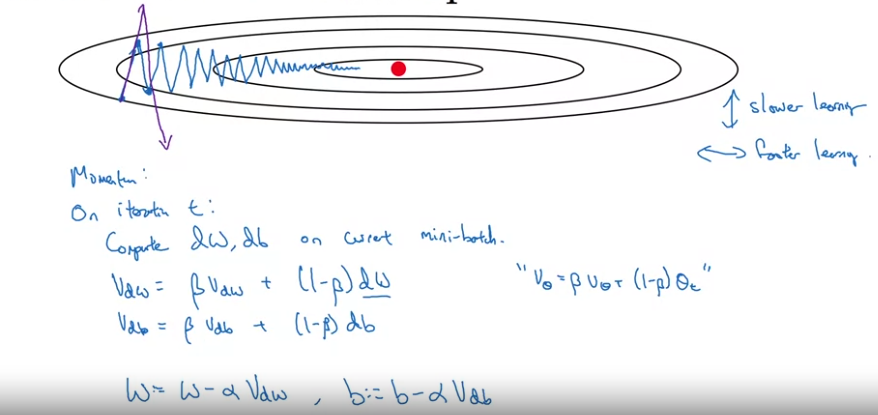 slower learning
faster learning.
Momentum:
On iteration t:
Compute dW, db on current mini-batch.
Vdw = βVdw + (1-β)dW
"Vθ = βVθ + (1-β)θt"
Vdb = βVdb + (1-β)db
W := W - αVdw , b := b - αVdb